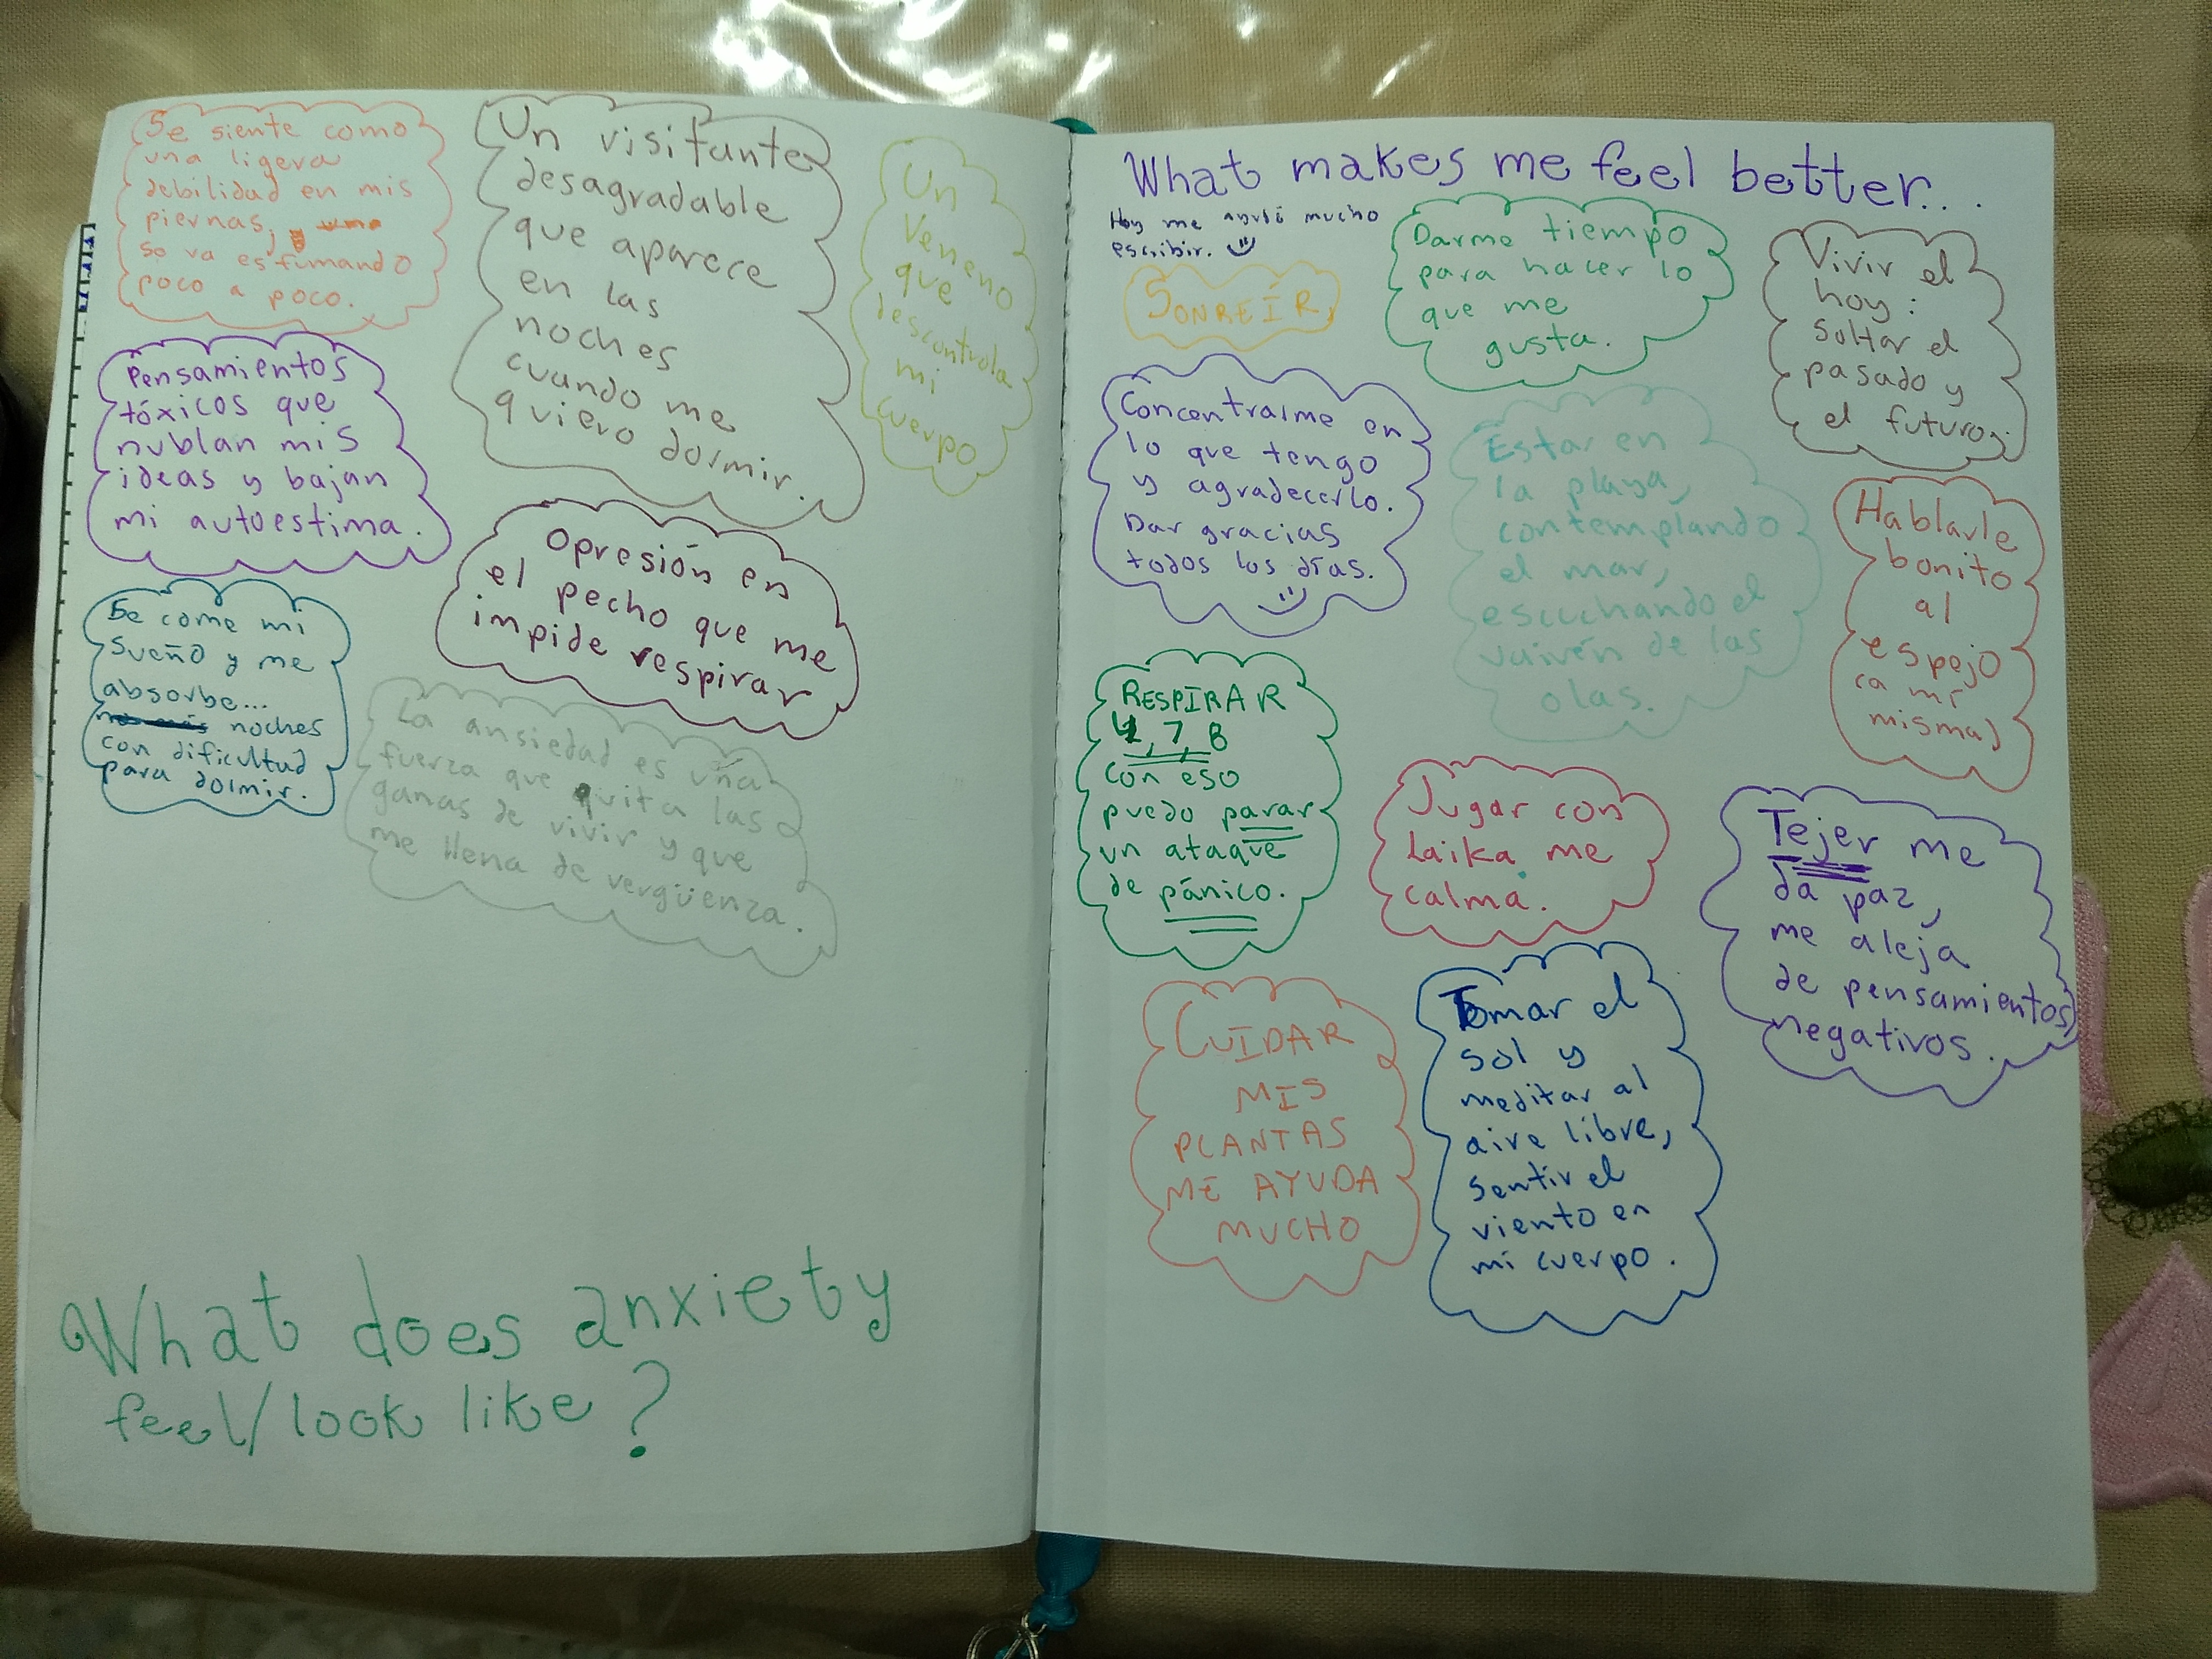 Se siente como
una ligera
debilidad en mis
piernas, y
se va esfumando
poco a poco.
Un visitante
desagradable
que aparece
en las
noches
cuando me
quiero dormir.
Un
Veneno
que
descontrola
mi
cuerpo
Pensamientos
tóxicos que
nublan mis
ideas y bajan
mi autoestima.
Opresión en
el pecho que me
impide respirar
Se come mi
sueño y me
absorbe...
noches
con dificultad
para dormir.
La ansiedad es una
fuerza que quita las
ganas de vivir y que
me llena de vergüenza.
What does anxiety
feel/look like?
What makes me feel better...
Hoy me ayudó mucho
escribir.
SONREÍR
Darme tiempo
para hacer lo
que me
gusta.
Vivir el
hoy:
soltar el
pasado y
el futuro.
Concentrarme en
lo que tengo
y agradecerlo.
Dar gracias
todos los días.
Estar en
la playa,
contemplando
el mar,
escuchando el
vaivén de las
olas.
Hablarle
bonito
al
espejo
(a mí
misma)
RESPIRAR
4, 7, 8
con eso
puedo parar
un ataque
de pánico.
Jugar con
Laika me
calma.
Tejer me
da paz,
me aleja
de pensamientos
negativos.
CUIDAR
MIS
PLANTAS
ME AYUDA
MUCHO
Tomar el
sol y
meditar al
aire libre,
sentir el
viento en
mi cuerpo.